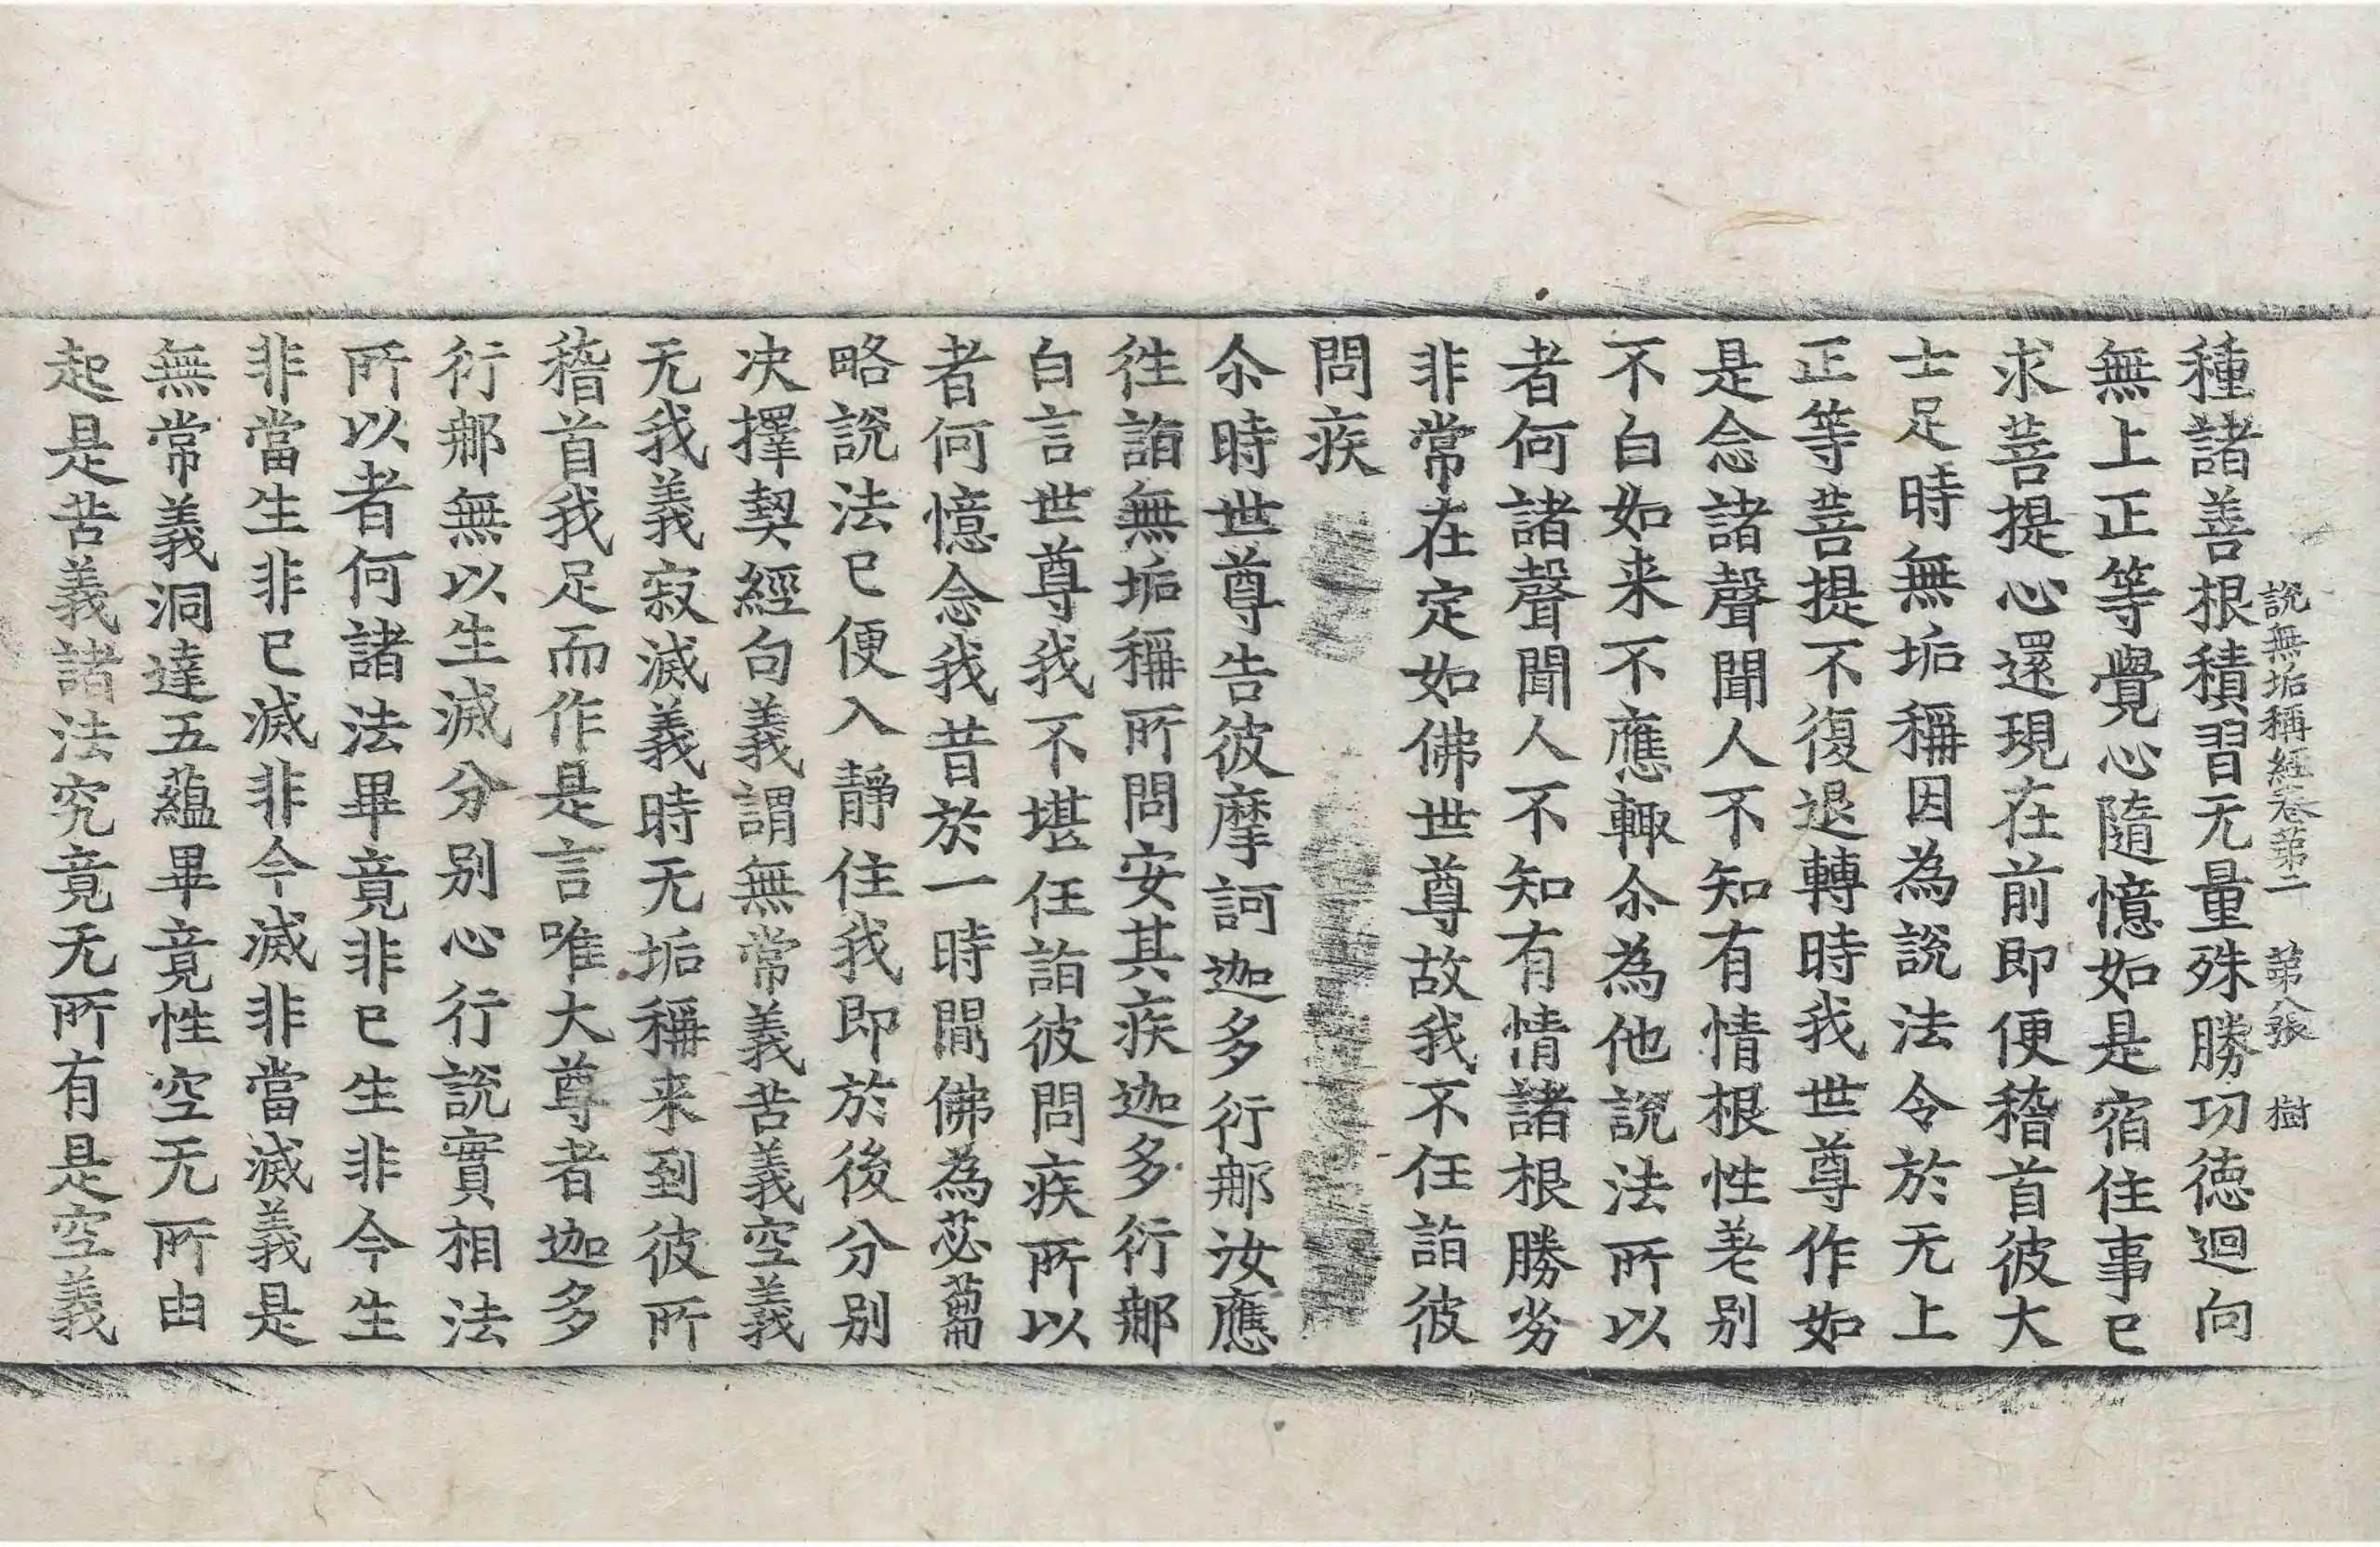 説無垢稱經卷苐二　苐八張　樹
種諸善根積習无量殊勝功徳迴向
無上正等覺心隨憶如是宿住事已
求菩提心還現在前即便稽首彼大
士足時無垢稱因為説法令於无上
正等菩提不復退轉時我世尊作如
是念諸聲聞人不知有情根性差别
不白如来不應輙尒為他説法所以
者何諸聲聞人不知有情諸根勝劣
非常在定如佛世尊故我不任詣彼
問疾
尒時世尊告彼摩訶迦多衍那汝應
徃詣無垢稱所問安其疾迦多衍那
白言世尊我不堪任詣彼問疾所以
者何憶念我昔於一時間佛為苾蒭
略説法已便入静住我即於後分别
决擇契經句義謂無常義苦義空義
无我義寂滅義時无垢稱来到彼所
稽首我足而作是言唯大尊者迦多
衍那無以生滅分别心行説實相法
所以者何諸法畢竟非已生非今生
非當生非已滅非今滅非當滅義是
無常義洞達五藴畢竟性空无所由
起是苦義諸法究竟无所有是空義